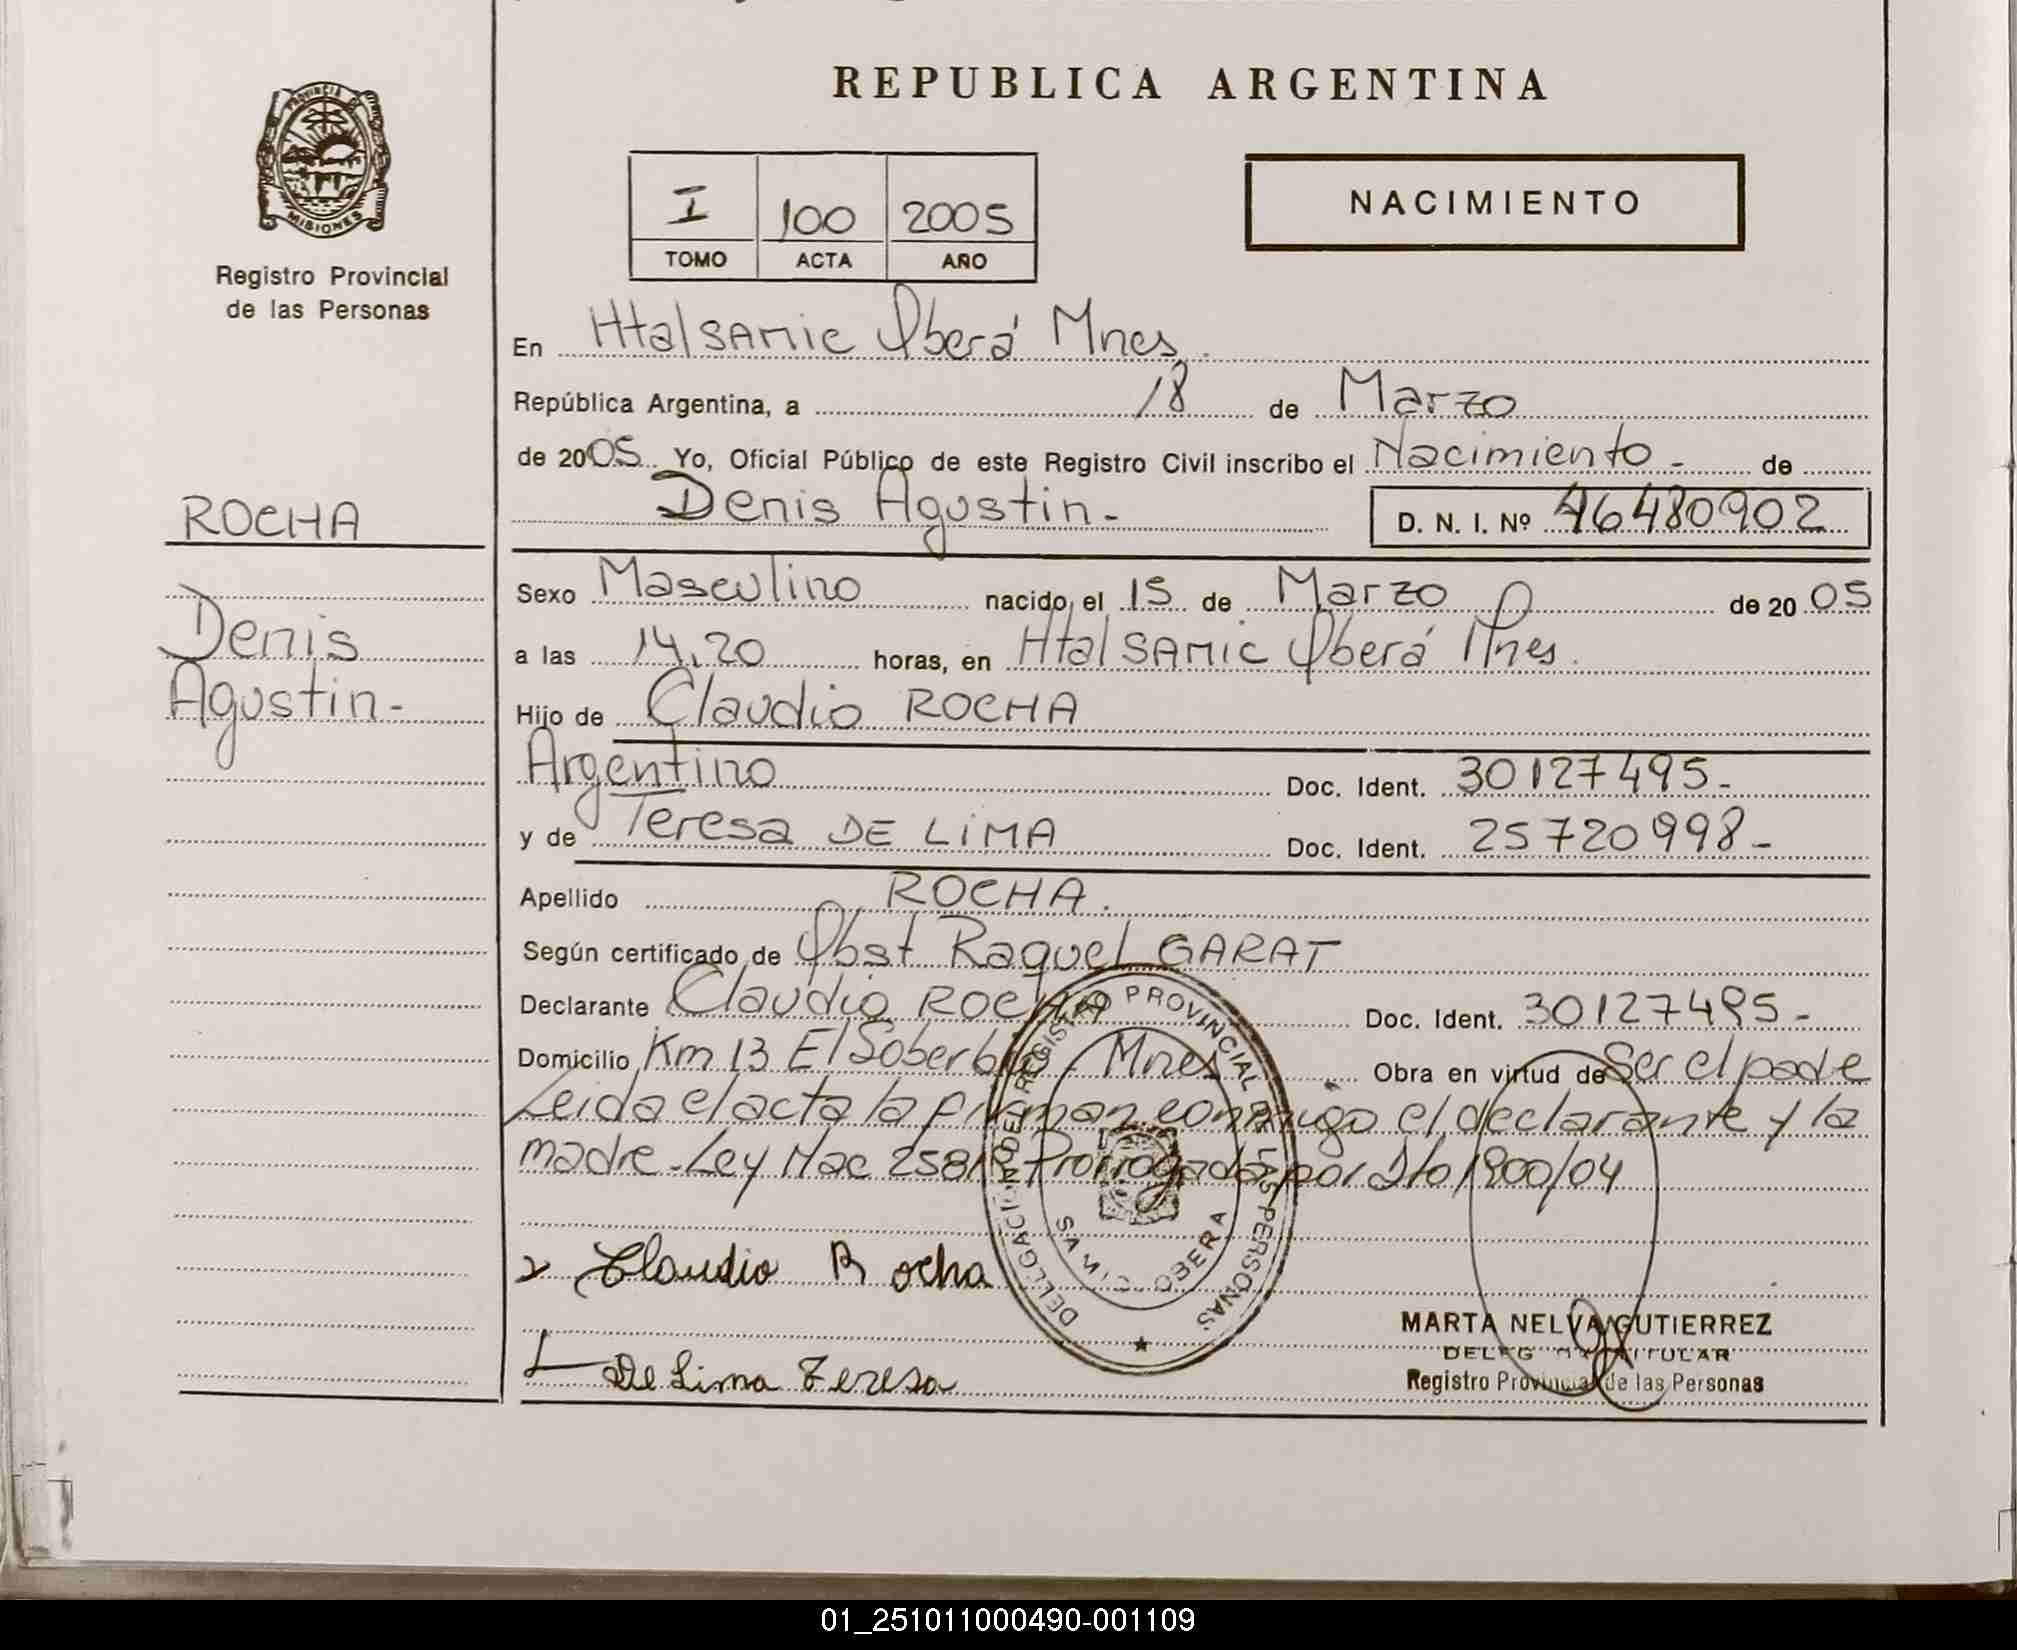 REPUBLICA ARGENTINA
PROVINCIA DE MISIONES
Registro Provincial
de las Personas
I 100 2005
TOMO ACTA AÑO
NACIMIENTO
En Htal SAMIC Oberá Mnes.
República Argentina, a 18 de Marzo
de 2005 Yo, Oficial Público de este Registro Civil inscribo el Nacimiento - de
Denis Agustin - D. N. I. Nº 46480902
ROCHA
Denis
Agustin -
Sexo Masculino nacido el 15 de Marzo de 2005
a las 14,20 horas, en Htal SAMIC Oberá Mnes.
Hijo de Claudio ROCHA
Argentino Doc. Ident. 30127495-
y de Teresa DE LiMA Doc. Ident. 25720998-
Apellido ROCHA.
Según certificado de Obst Raquel GARAT
Declarante Claudio ROCHA Doc. Ident. 30127495-
Domicilio Km 13 El Soberbio - Mnes Obra en virtud de Ser el padre
Leida el acta la firman conmigo el declarante y la
madre - Ley Nac 25819 Prorrogada por Dto 1900/04
DELEGACION DEL REGISTRO PROVINCIAL DE LAS PERSONAS
OBERA
Claudio Rocha
De Lima Teresa
MARTA NELVA GUTIERREZ
TITULAR
Registro Provincial de las Personas
01_251011000490-001109